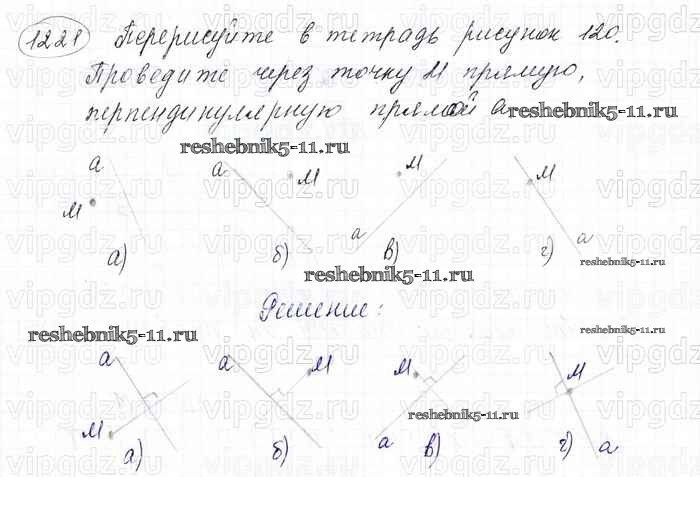 1221 Перерисуйте в тетрадь рисунок 120.
Проведите через точку М прямую,
перпендикулярную прямой а
reshebnik5-11.ru
reshebnik5-11.ru
а а М М М
М а а
а) б) в) г)
reshebnik5-11.ru
reshebnik5-11.ru
Решение:
reshebnik5-11.ru
reshebnik5-11.ru
а а М М М
М reshebnik5-11.ru
а) б) а в) г) а
vipgdz.ru